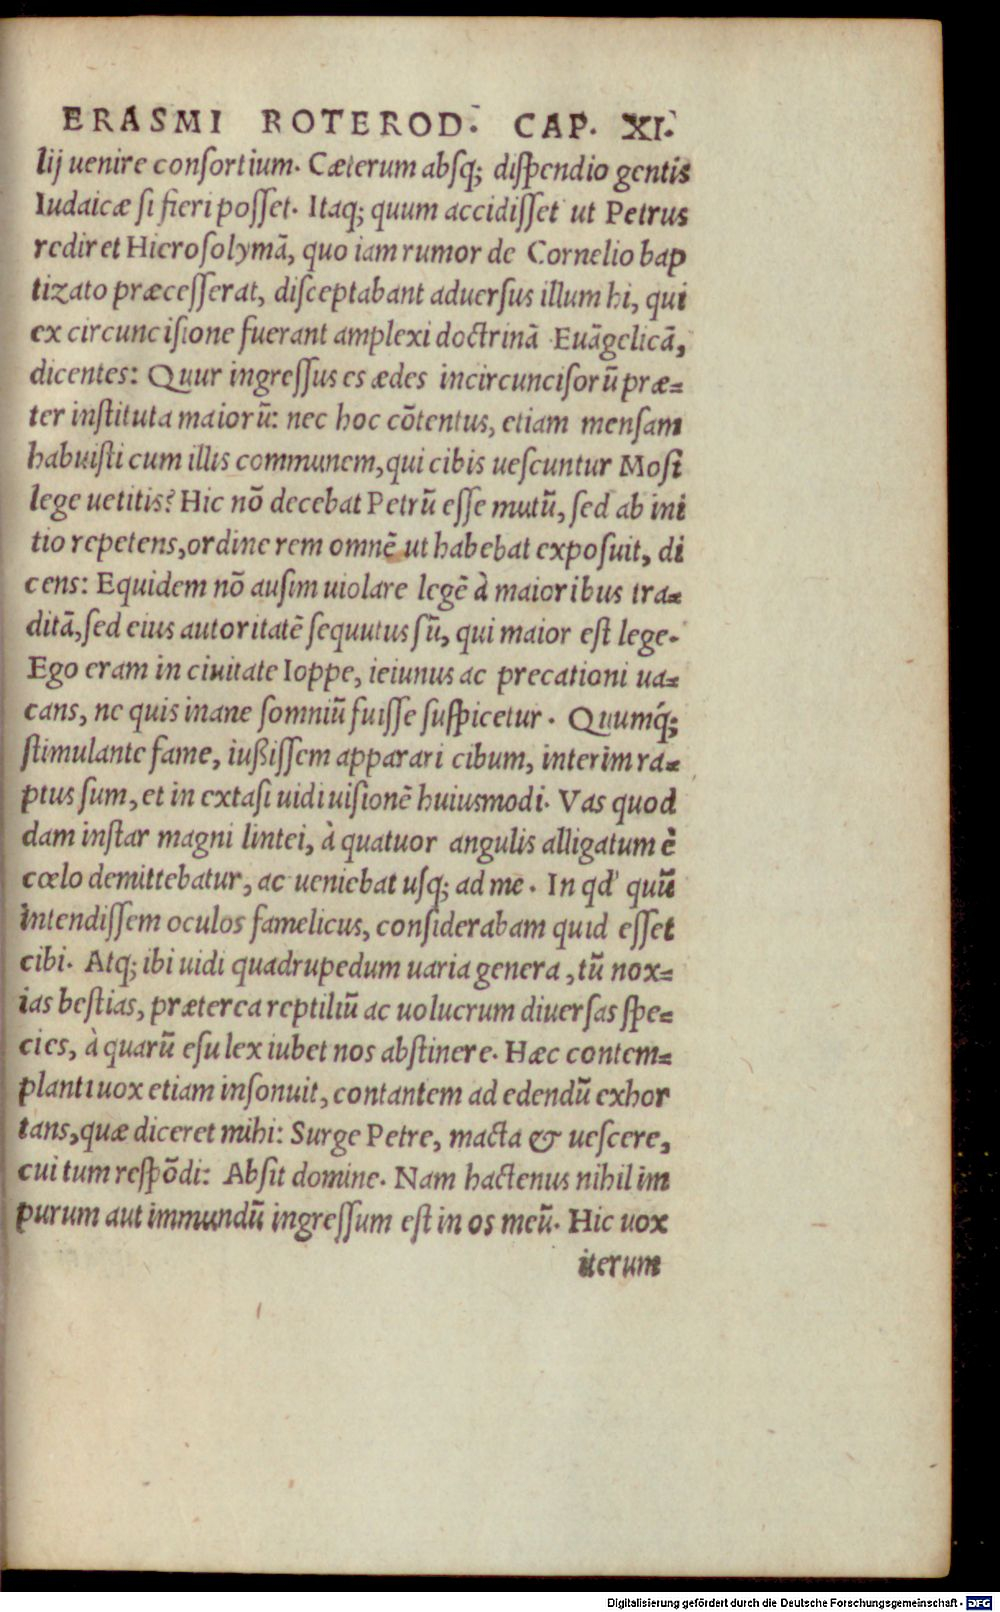 ERASMI ROTEROD. CAP. XI.
lij uenire consortium. Cæterum absq; dispendio gentis
Iudaicæ si fieri posset. Itaq; quum accidisset ut Petrus
rediret Hierosolymā, quo iam rumor de Cornelio bap
tizato præcesserat, disceptabant aduersus illum hi, qui
ex circuncisione fuerant amplexi doctrinā Euāgelicā,
dicentes: Quur ingressus es ædes incircuncisorū præ=
ter instituta maiorū: nec hoc cōtentus, etiam mensam
habuisti cum illis communem, qui cibis uescuntur Mosi
lege uetitis? Hic nō decebat Petrū esse mutū, sed ab ini
tio repetens, ordine rem omnē ut habebat exposuit, di
cens: Equidem nō ausim uiolare legē à maioribus tra=
ditā, sed eius autoritatē sequutus sū, qui maior est lege.
Ego eram in ciuitate Ioppe, ieiunus ac precationi ua=
cans, ne quis inane somniū fuisse suspicetur. Quumq́;
stimulante fame, iußissem apparari cibum, interim ra=
ptus sum, et in extasi uidi uisionē huiusmodi. Vas quod
dam instar magni lintei, à quatuor angulis alligatum è
cœlo demittebatur, ac ueniebat usq; ad me. In qd' quū
intendissem oculos famelicus, considerabam quid esset
cibi. Atq; ibi uidi quadrupedum uaria genera, tū nox=
ias bestias, præterea reptiliū ac uolucrum diuersas spe=
cies, à quarū esu lex iubet nos abstinere. Hæc contem=
planti uox etiam insonuit, contantem ad edendū exhor
tans, quæ diceret mihi: Surge Petre, macta & uescere,
cui tum respōdi: Absit domine. Nam hactenus nihil im
purum aut immundū ingressum est in os meū. Hic uox
iterum
Digitalisierung gefördert durch die Deutsche Forschungsgemeinschaft - DFG